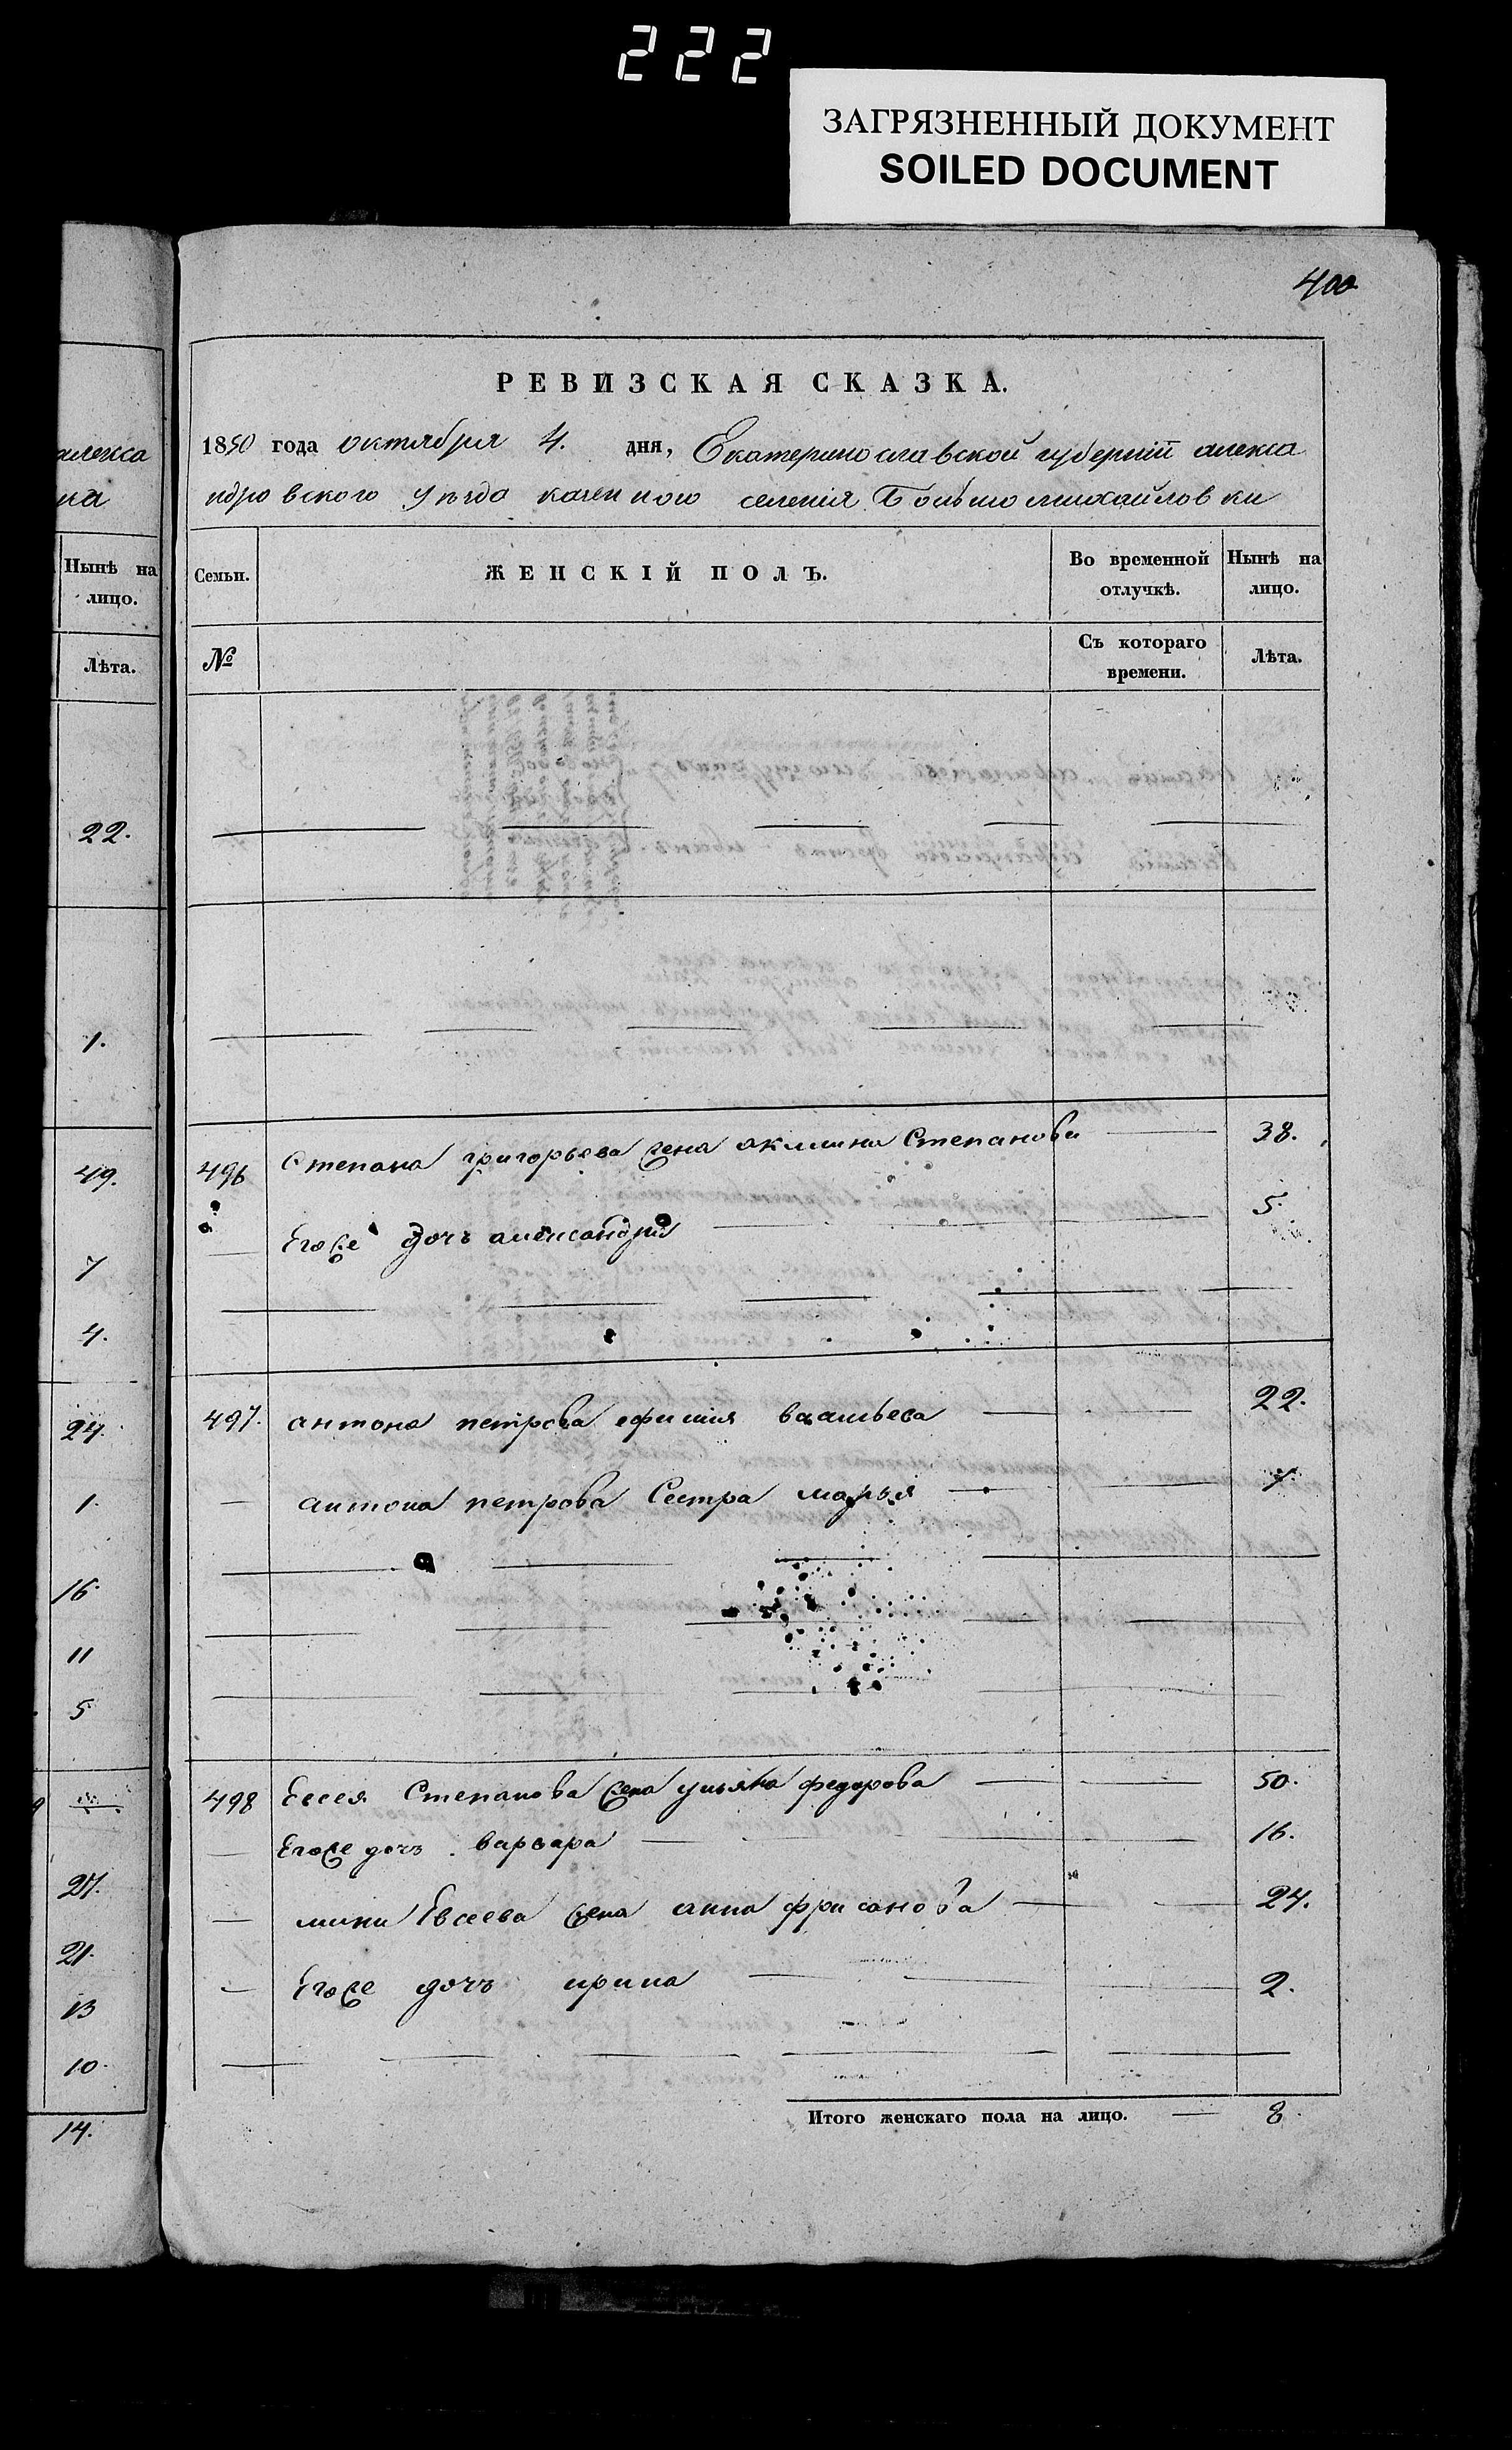 222
ЗАГРЯЗНЕННЫЙ ДОКУМЕНТ
SOILED DOCUMENT
400
алекса
ка
Нынѣ на
лицо.
Лѣта.
22.
1.
49.
7
4.
24.
1.
16.
11
5
27.
21.
13
10.
14.
РЕВИЗСКАЯ СКАЗКА.
1850 года октября 4. дня, Екатеринославской губерніи алекса
ндровского уѣзда казенного селенія Большомихайловки
Семьи. ЖЕНСКІЙ ПОЛЪ. Во временной отлучкѣ. Нынѣ на лицо.
№ Съ котораго времени. Лѣта.
496 Степана григорьева жена акилина Степанова 38.
Егоже дочь александра 5.
497. антона петрова ефимия васильева 22.
антона петрова Сестра марья
498 Евсея Степанова жена ульяна федорова 50.
Егоже дочь варвара 16.
мины Евсеева жена анна 24.
Егоже дочь ирина 2.
Итого женскаго пола на лицо. 8.